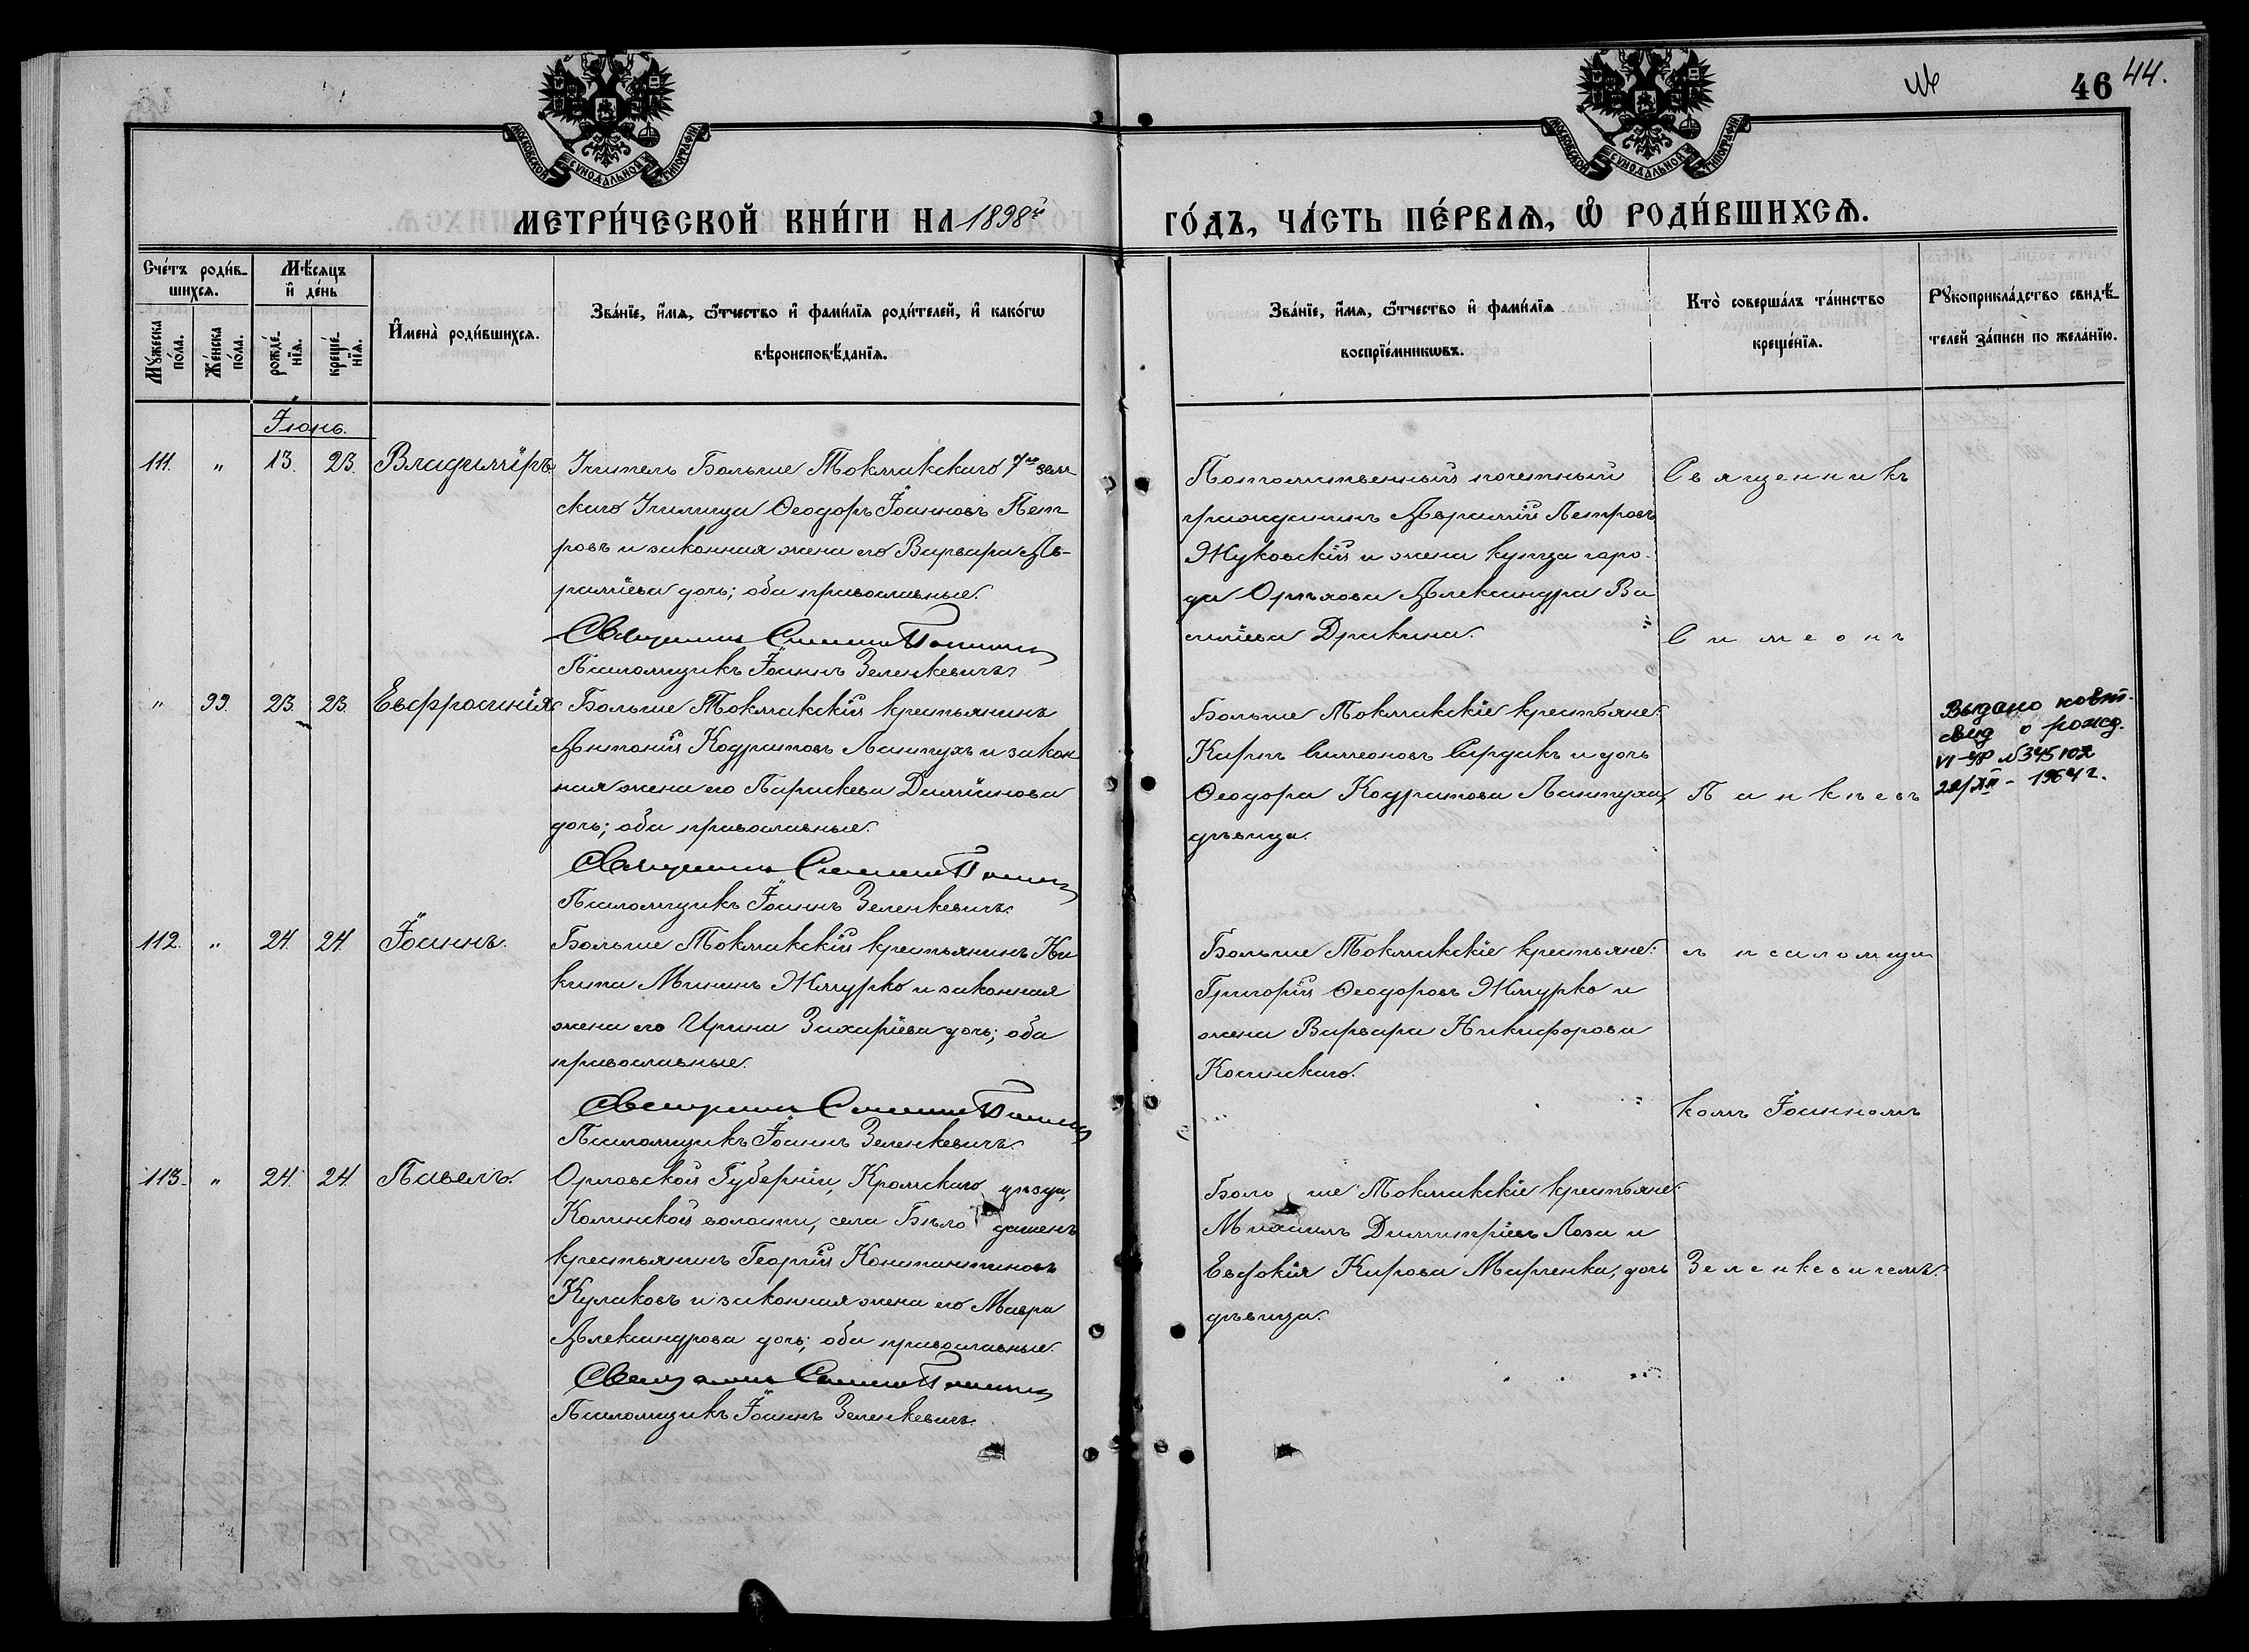 44.
46
МОСКОВСКОЙ СѴНОДАЛЬНОЙ ТИПОГРАФІИ
МОСКОВСКОЙ СѴНОДАЛЬНОЙ ТИПОГРАФІИ
МЕТРИ́ЧЕСКОЙ КНИ́ГИ НА 1898й ГО́ДЪ, ЧА́СТЬ ПЕ́РВАѦ, Ѡ҆ РОДИ́ВШИХСѦ.
Сче́тъ роди́в-
шихсѧ.
Мꙋ́жеска по́ла.
Же́нска по́ла.
Мѣ́сѧцъ
и҆ де́нь
рожде́нїѧ.
креще́нїѧ.
И҆мена̀ роди́вшихсѧ.
Зва́нїе, и҆́мѧ, ѻ҆́тчество и҆ фами́лїѧ роди́телей, и҆ како́гѡ
вѣроисповѣ́данїѧ.
Зва́нїе, и҆́мѧ, ѻ҆́тчество и҆ фами́лїѧ
воспрїе́мникѡвъ.
Кто̀ соверша́лъ та́инство
креще́нїѧ.
Рꙋкоприкла́дство свидѣ́-
телей за́писи по жела́нїю.
Іюнь.
111. " 13. 23. Владиміръ
Учитель Больше Токмакскаго 7го зем
скаго Училища Ѳеодоръ Іоанновъ Пет
ровъ и законная жена его Варвара Ав-
раміева дочь; оба православные.
Священникъ Симеонъ
Псаломщикъ Іоаннъ Зеленкевичъ.
Потомственный почетный
гражданинъ Аврамій Петровъ
Жуковскій и жена купца горо-
да Орѣхова Александра Ва
силіева Дракина.
" 99. 23. 23. Евфросинія
Больше Токмакскій крестьянинъ
Антоній Кодратовъ Лантухъ и закон
ная жена его Параскева Даміанова
дочь; оба православные.
Священникъ Симеонъ
Псаломщикъ Іоаннъ Зеленкевичъ.
Больше Токмакскіе крестьяне:
Карпъ Симеоновъ Сардакъ и дочь
Ѳеодора Кодратова Лантуха,
дѣвица.
Выдано повт.
свид о рожд.
VI-ЯР №345102
22/XII - 1964 г.
112. " 24. 24. Іоаннъ.
Больше Токмакскій крестьянинъ Ни
кита Мининъ Жмурко и законная
жена его Ирина Захаріева дочь; оба
православные.
Священникъ Симеонъ
Псаломщикъ Іоаннъ Зеленкевичъ.
Больше Токмакскіе крестьяне:
Григорій Ѳеодоровъ Жмурко и
жена Варвара Никифорова
Косинскаго.
113. " 24. 24. Павелъ.
Орловской Губерніи, Кромскаго уѣзда,
крестьянинъ Георгій Константиновъ
Кулаковъ и законная жена его Мавра
Александрова дочь; оба православные.
Священникъ Симеонъ
Псаломщикъ Іоаннъ Зеленкевичъ.
Больше Токмакскіе крестьяне:
Михаилъ Димитріевъ Лоза и
Евдокія Кирова Марченка, дочь
дѣвица.
Священникъ
Симеонъ
съ псаломщи
комъ Іоанномъ
Зеленкевичемъ.